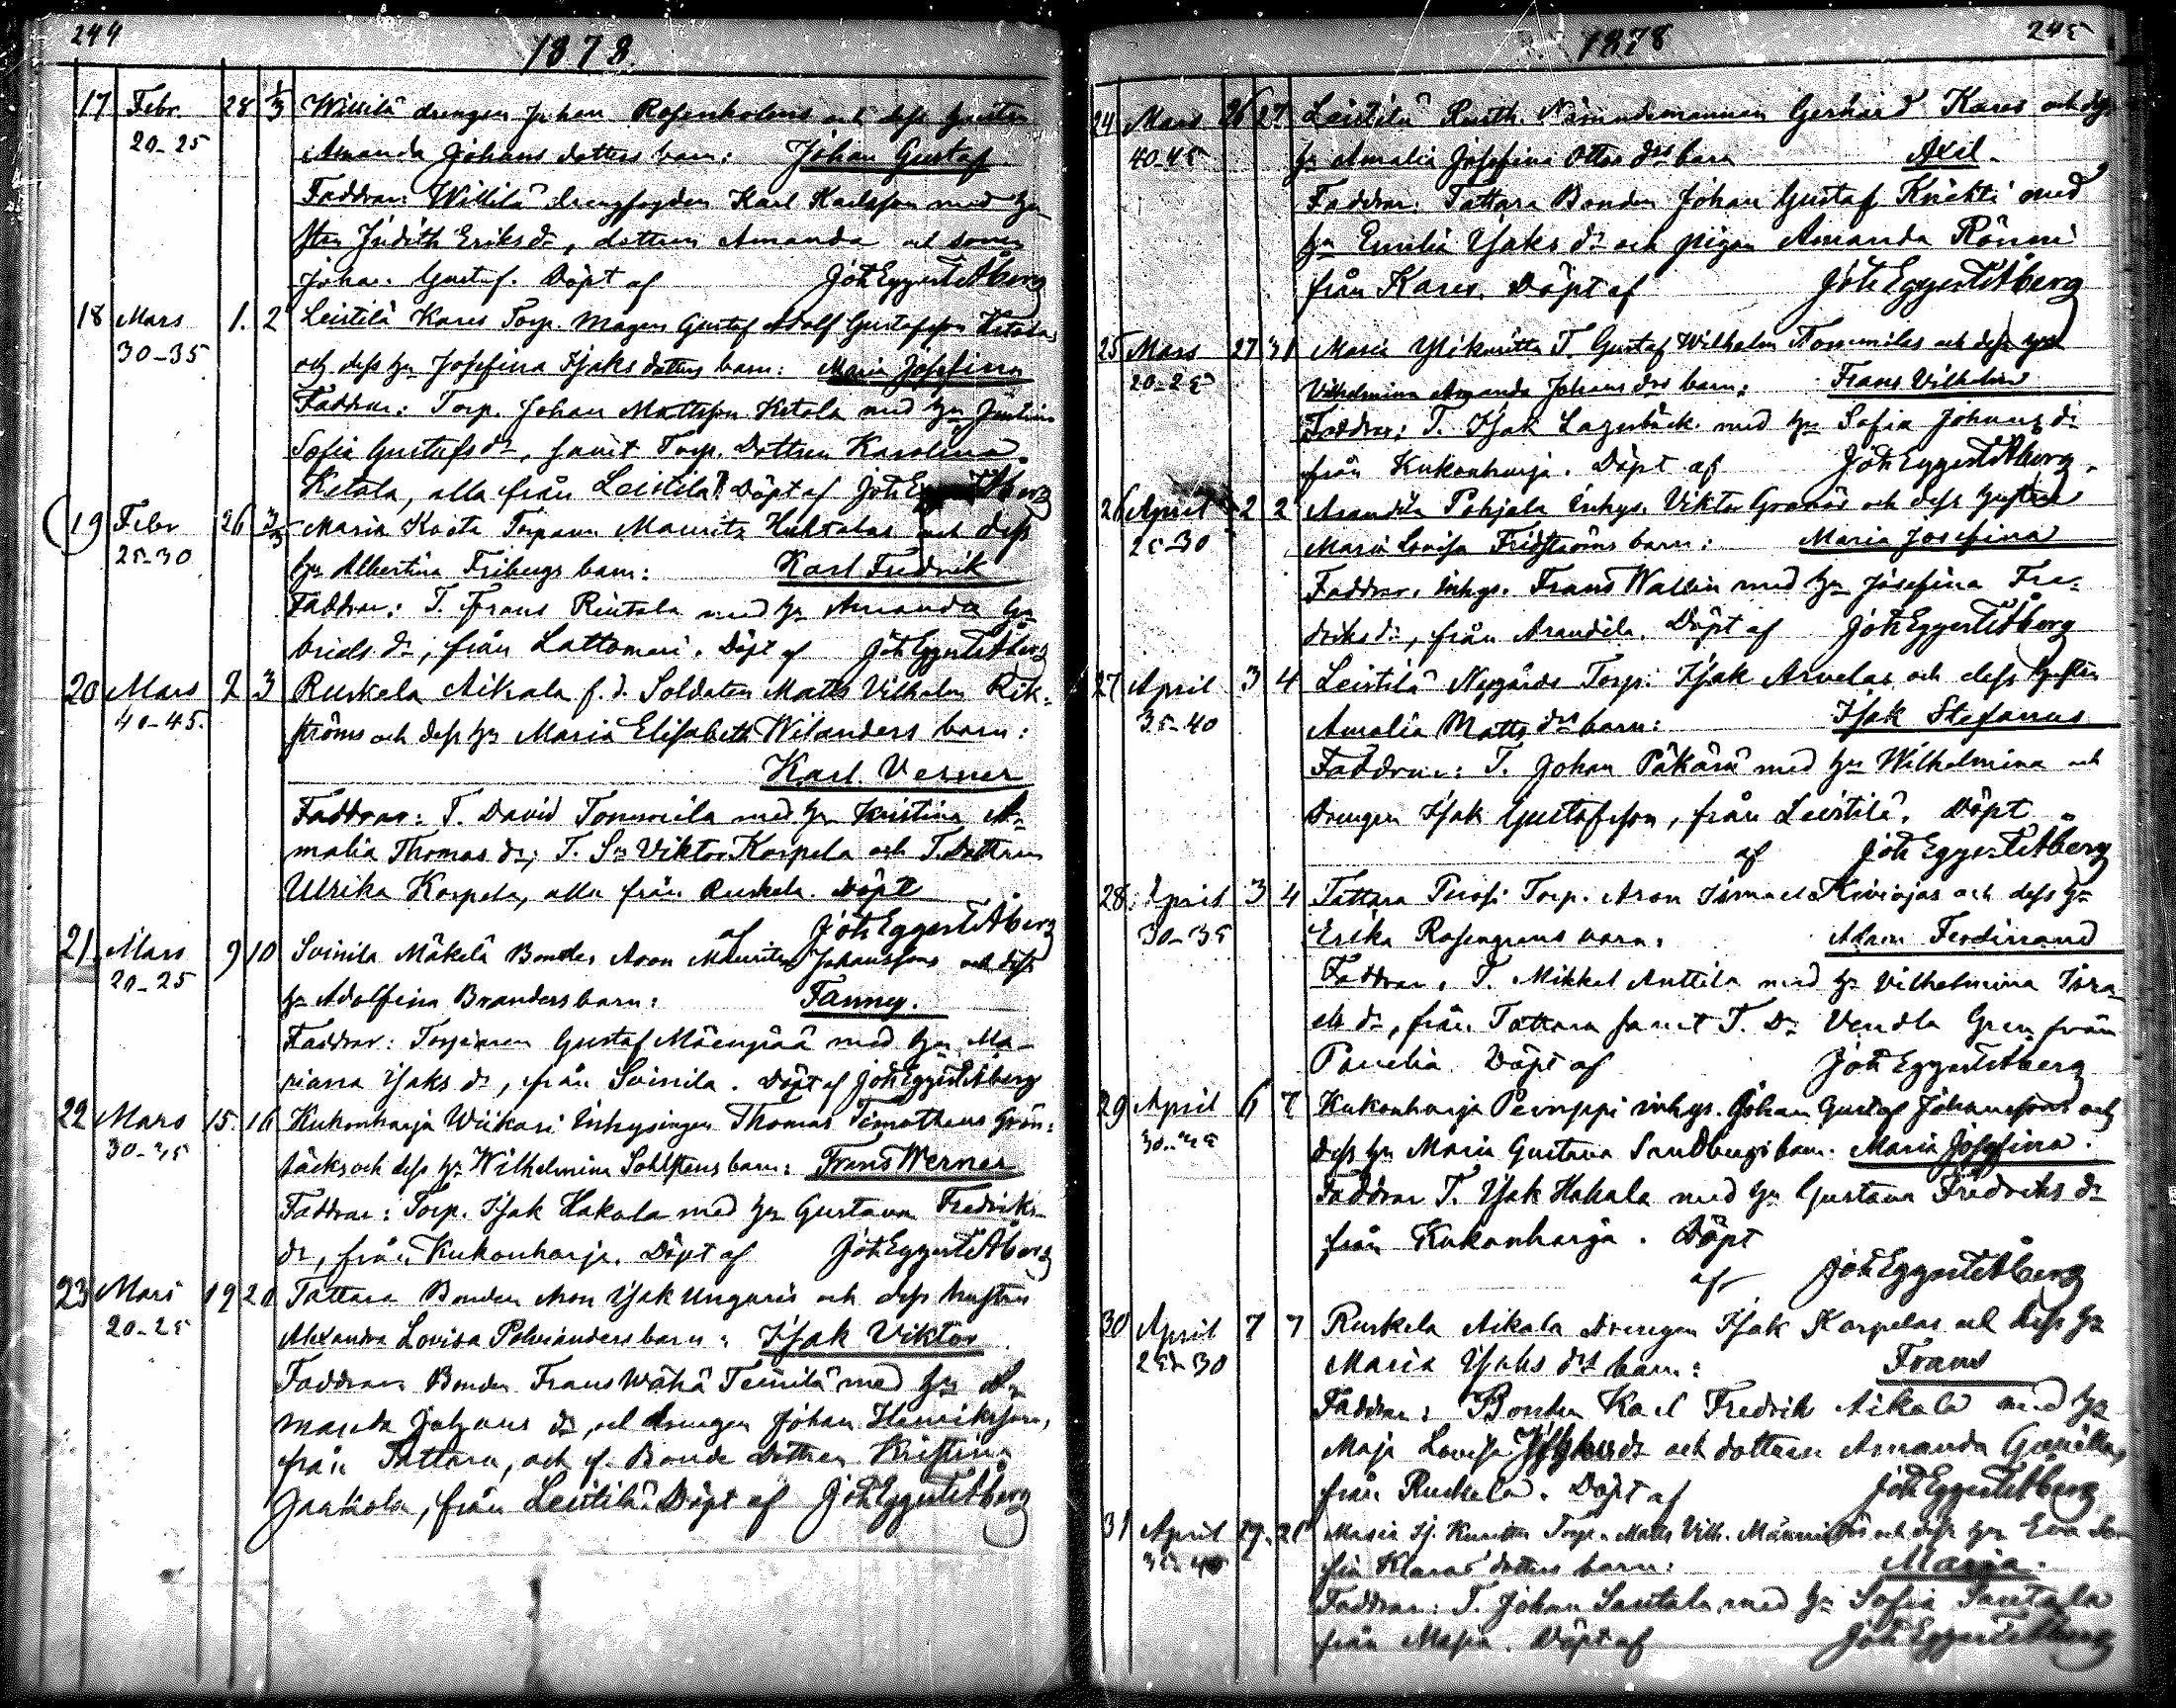 244
1878.
17 Febr. 28 1/3 Willilä drengen Johan Rosenholms och dess hustru
20-25 Amanda Johans dotters barn: Johan Gustaf
Faddrar: Willilä drengfogden Karl Karlsson med hu
stru Judith Eriks dr, dottren Amanda och sonen
Johan Gustaf. Döpt af Joh Eggert Åberg
18 Mars 1. 2 Leistilä Kares Torp. Magen Gustaf Adolf Gustafsson Ketolas
30-35 och dess hu Josefina Isaks dotters barn: Maria Josefina
Faddrar: Torp. Johan Mattsson Ketola med hu Justina
Sofia Gustafs dr, samt Torp. Dottren Karolina
Ketola, alla från Leistilä. Döpt af Joh Eggert Åberg
19 Febr 26 3/3 Masia Koota Torparen Mauritz Huhtalas och dess
25-30 hu Albertina Fribergs barn: Karl Fredrik
Faddrar: T. Frans Rintala med hu Amanda Ga-
briels dr, från Lattomeri. Döpt af Joh Eggert Åberg
20 Mars 2 3 Ruskela Aikala f.d. Soldaten Matts Vilhelm Rik-
40-45. ströms och dess hu Maria Elisabeth Wilanders barn:
Karl Verner
Faddrar: T. David Tommila med hu Kristina A-
malia Thomas dr, T. Sn Viktor Korpela och T. Dottren
Ulrika Korpela, alla från Ruskela. Döpt
af Joh Eggert Åberg
21 Mars 9 10 Soinila Mäkelä Bonden Aron Mauritz Johanssons och dess
20-25 hu Adolfina Branders barn: Fanny.
Faddrar: Torparen Gustaf Mäenpää med hu Ma-
riana Isaks dr, från Soinila. Döpt af Joh Eggert Åberg
22 Mars 15. 16 Kukonharja Wiikari Inhysingen Thomas Timotheus Grön-
30-35 bäcks och dess hu Wilhelmina Sohlstens barn: Frans Werner
Faddrar: Torp. Isak Hakala med hu Gustava Fredriks-
dr, från Kukonharja. Döpt af Joh Eggert Åberg
23 Mars 19 20 Tattara Bonden Aron Isak Ungaris och dess hustrus
20-25 Alexandra Lovisa Polvianders barn: Isak Viktor
Faddrar: Bonden Frans Wähä Teinilä med hu A-
manda Johans dr, och drengen Johan Henriksson,
från Tattara, och f. Bonde dottren Kristina
Jaakola, från Leistilä. Döpt af Joh Eggert Åberg
245
1878
24 Mars 26 27 Leistilä Rusth. Nämndemannen Gerhard Kares och dess
40-45 hu Amalia Josefina Ottos drs barn Axel.
Faddrar: Tattara Bonden Johan Gustaf Knihti med
hu Emilia Isaks dr och pigan Amanda Rönni
från Kares. Döpt af Joh Eggert Åberg
25 Mars 27 31 Masia Ylikuritta T. Gustaf Wilhelm Tommilas och dess hu
20-25 Vilhelmina Amanda Johans drs barn: Frans Vilhelm
Faddrar: T. Isak Lagerbäck med hu Sofia Johans dr
från Kukonharja. Döpt af Joh Eggert Åberg.
26 April 2 2 Arandila Pohjala Inhys. Viktor Granös och dess hustru
25-30 Maria Lovisa Fridströms barn: Maria Josefina
Faddrar: Inhys. Frans Wallin med hu Josefina Fre-
driks dr, från Arandila. Döpt af Joh Eggert Åberg
27 April 3 4 Leistilä Nygårds Torp. Isak Arvelas och dess hustru
35-40 Amalia Matts drs barn: Isak Stefanus
Faddrar: T. Johan Päkärä med hu Wilhelmina och
Drengen Isak Gustafsson, från Leistilä. Döpt
af Joh Eggert Åberg
28 April 3 4 Tattara Purosi Torp. Aron Ismael Kiviojas och dess hu
30-35 Erika Rosengrens barn: Adam Ferdinand
Faddrar: T. Mikkel Anttila med hu Vilhelmina Isra-
els dr, från Tattara samt T. Dr Vendla Gren från
Panelia. Döpt af Joh Eggert Åberg
29 April 6 7 Kukonharja Pernppi inhys. Johan Gustaf Johanssons och
30-35 dess hu Maria Gustava Sandbergs barn. Maria Josefina.
Faddrar T. Isak Hakala med hu Gustava Fredriks dr
från Kukonharja. Döpt
af Joh Eggert Åberg
30 April 7 7 Ruskela Aikala Drengen Isak Korpelas och dess hu
25-30 Maria Isaks drs barn: Frans
Faddrar: Bonden Karl Fredrik Aikala med hu
Maja Lovisa dr och dottren Amanda
från Ruskela. Döpt af Joh Eggert Åberg
31 April 19. 21 Masia Kuritta Torp. Matts Vilh. och dess hu Eva
35-40 fia Klaras dotters barn: Maria.
Faddrar: T. Johan Santala med hu Sofia Santala
från Masia. Döpt af Joh Eggert Åberg